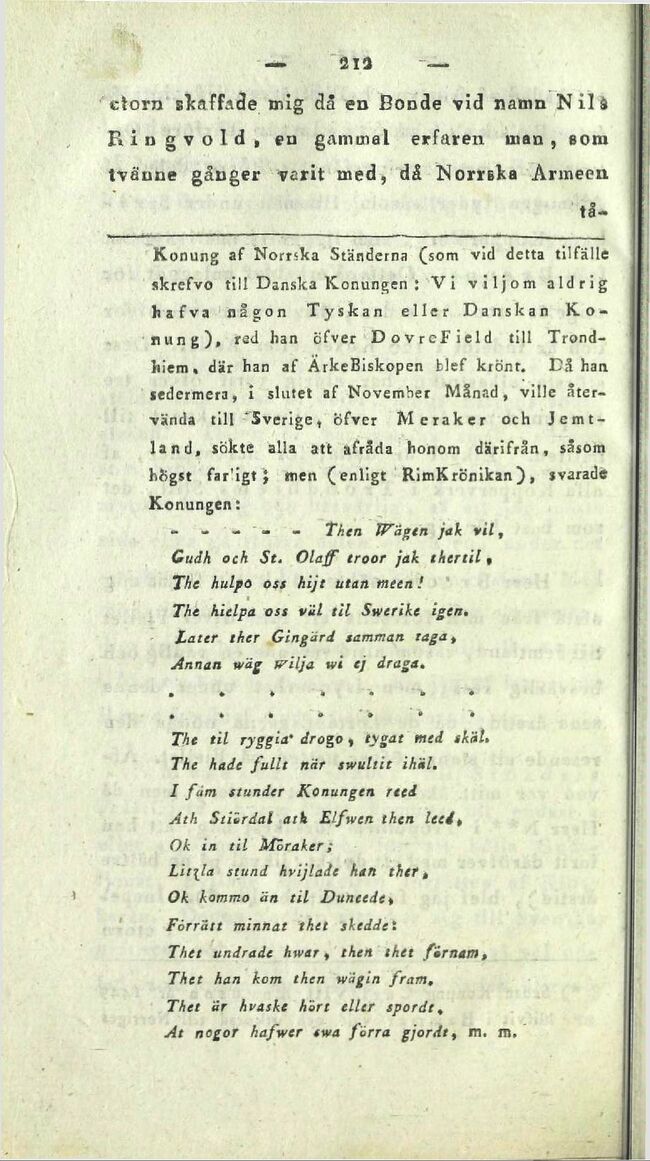 — 212 —
ctorn skaffade mig då en Bonde vid namn Nils
Ringvold, en gammal erfaren man, som
tvänne gånger varit med, då Norrska Armeen
tå-
Konung af Norrska Ständerna (som vid detta tilfälle
skrefvo till Danska Konungen: Vi viljom aldrig
hafva någon Tyskan eller Danskan Ko-
nung), red han öfver DovreField till Trond-
hiem, där han af ÄrkeBiskopen blef krönt. Då han
sedermera, i slutet af November Månad, ville åter-
vända till Sverige, öfver Meraker och Jemt-
land, sökte alla att afråda honom därifrån, såsom
högst farligt; men (enligt RimKrönikan), svarade
Konungen:
- - - - - Then Wägen jak vil,
Gudh och St. Olaff troor jak thertil,
The hulpo oss hijt utan meen!
The hielpa oss väl til Swerike igen.
Later ther Gingärd samman taga,
Annan wäg wilja wi ej draga.
. . . . . . .
. . . . . . .
The til ryggia drogo, tygat med skäl.
The hade fullt när swultit ihäl.
I fäm stunder Konungen reed
Ath Stiördal ath Elfwen then leed,
Ok in til Möraker;
Litzla stund hvijlade han ther,
Ok kommo än til Duneede,
Förrätt minnat thet skedde:
Thet undrade hwar, then thet förnam,
Thet han kom then wägin fram.
Thet är hvaske hört eller spordt,
At nogor hafwer swa förra gjordt, m. m.